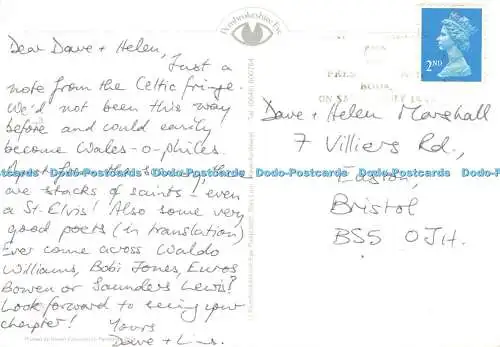 Pembrokeshire Eye
Dear Dave + Helen,
Just a
note from the Celtic fringe.
We'd not been this way
before and could easily
become Wales-o-philes.
are stacks of saints - even
a St. Elvis! Also some very
good poets (in translation)
Ever come across Waldo
Williams, Bobi Jones, Euros
Bowen or Saunders Lewis?
Look forward to seeing your
chapter!
Yours
Dave +
2ND
Dave + Helen Marshall
7 Villiers Rd.,
Easton,
Bristol
BS5 0JH.
Dodo-Postcards Dodo-Postcards Dodo-Postcards Dodo-Postcards Dodo-Postcards